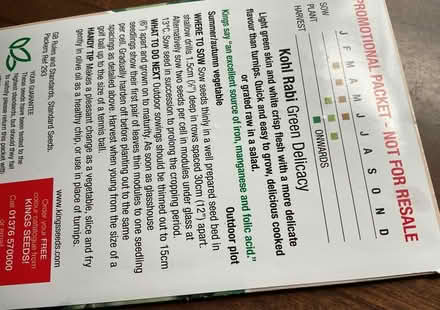 PROMOTIONAL PACKET - NOT FOR RESALE
J F M A M J J A S O N D
SOW
PLANT
HARVEST
ONWARDS
Kohl Rabi Green Delicacy
Light green skin and white crisp flesh with a more delicate
flavour than turnips. Quick and easy to grow, delicious cooked
or grated raw in a salad.
Kings say "an excellent source of iron, manganese and folic acid."
Summer/autumn vegetable
Outdoor plot
WHERE TO SOW Sow seeds thinly in a well prepared seed bed in
shallow drills 1.5cm (½") deep in rows spaced 30cm (12") apart.
Alternatively sow two seeds per cell in modules under glass at
13°C. Sow seed in succession to prolong the cropping period.
WHAT TO DO NEXT Outdoor sowings should be thinned out to 15cm
(6") apart and grown on to maturity. As soon as glasshouse
seedlings show their first pair of leaves thin modules to one seedling
per cell. Gradually harden off before planting out to the same
spacings as detailed above. Harvest when young from the size of a
golf ball up to the size of a tennis ball.
HANDY TIP Makes a pleasant change as a vegetable, slice and fry
gently in olive oil as a healthy chip, or use in place of turnips.
GB Rules and Standards. Standard Seeds.
Packers Ref 293
YOUR GUARANTEE
These seeds have been tested to the
highest standards, but should they fail
to satisfy please return this packet with
www.kingsseeds.com
Order your FREE
colour catalogue from
KINGS SEEDS!
Call 01376 570000